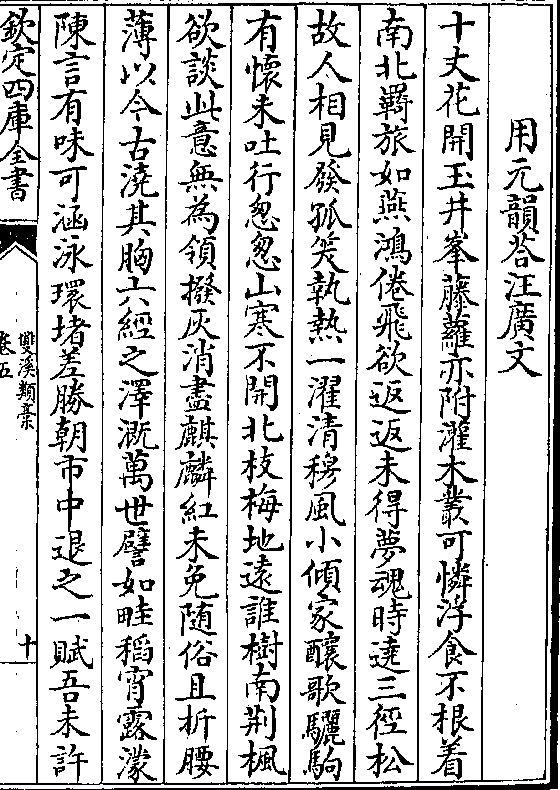 用元韻荅汪廣文
十丈花開玉井峯藤蘿亦附灌木叢可憐浮食不根着
南北羇旅如燕鴻倦飛欲返返未得夢魂時遶三徑松
故人相見發孤笑執熱一濯清穆風小傾家釀歌驪駒
有懷未吐行怱怱山寒不開北枝梅地遠誰樹南荆楓
欲談此意無為領撥灰消盡麒麟紅未免随俗且折腰
薄以今古澆其胸六經之澤溉萬世譬如畦稻宵露濛
陳言有味可涵泳環堵差勝朝市中退之一賦吾未許
欽定四庫全書
雙溪類稾
卷五
十